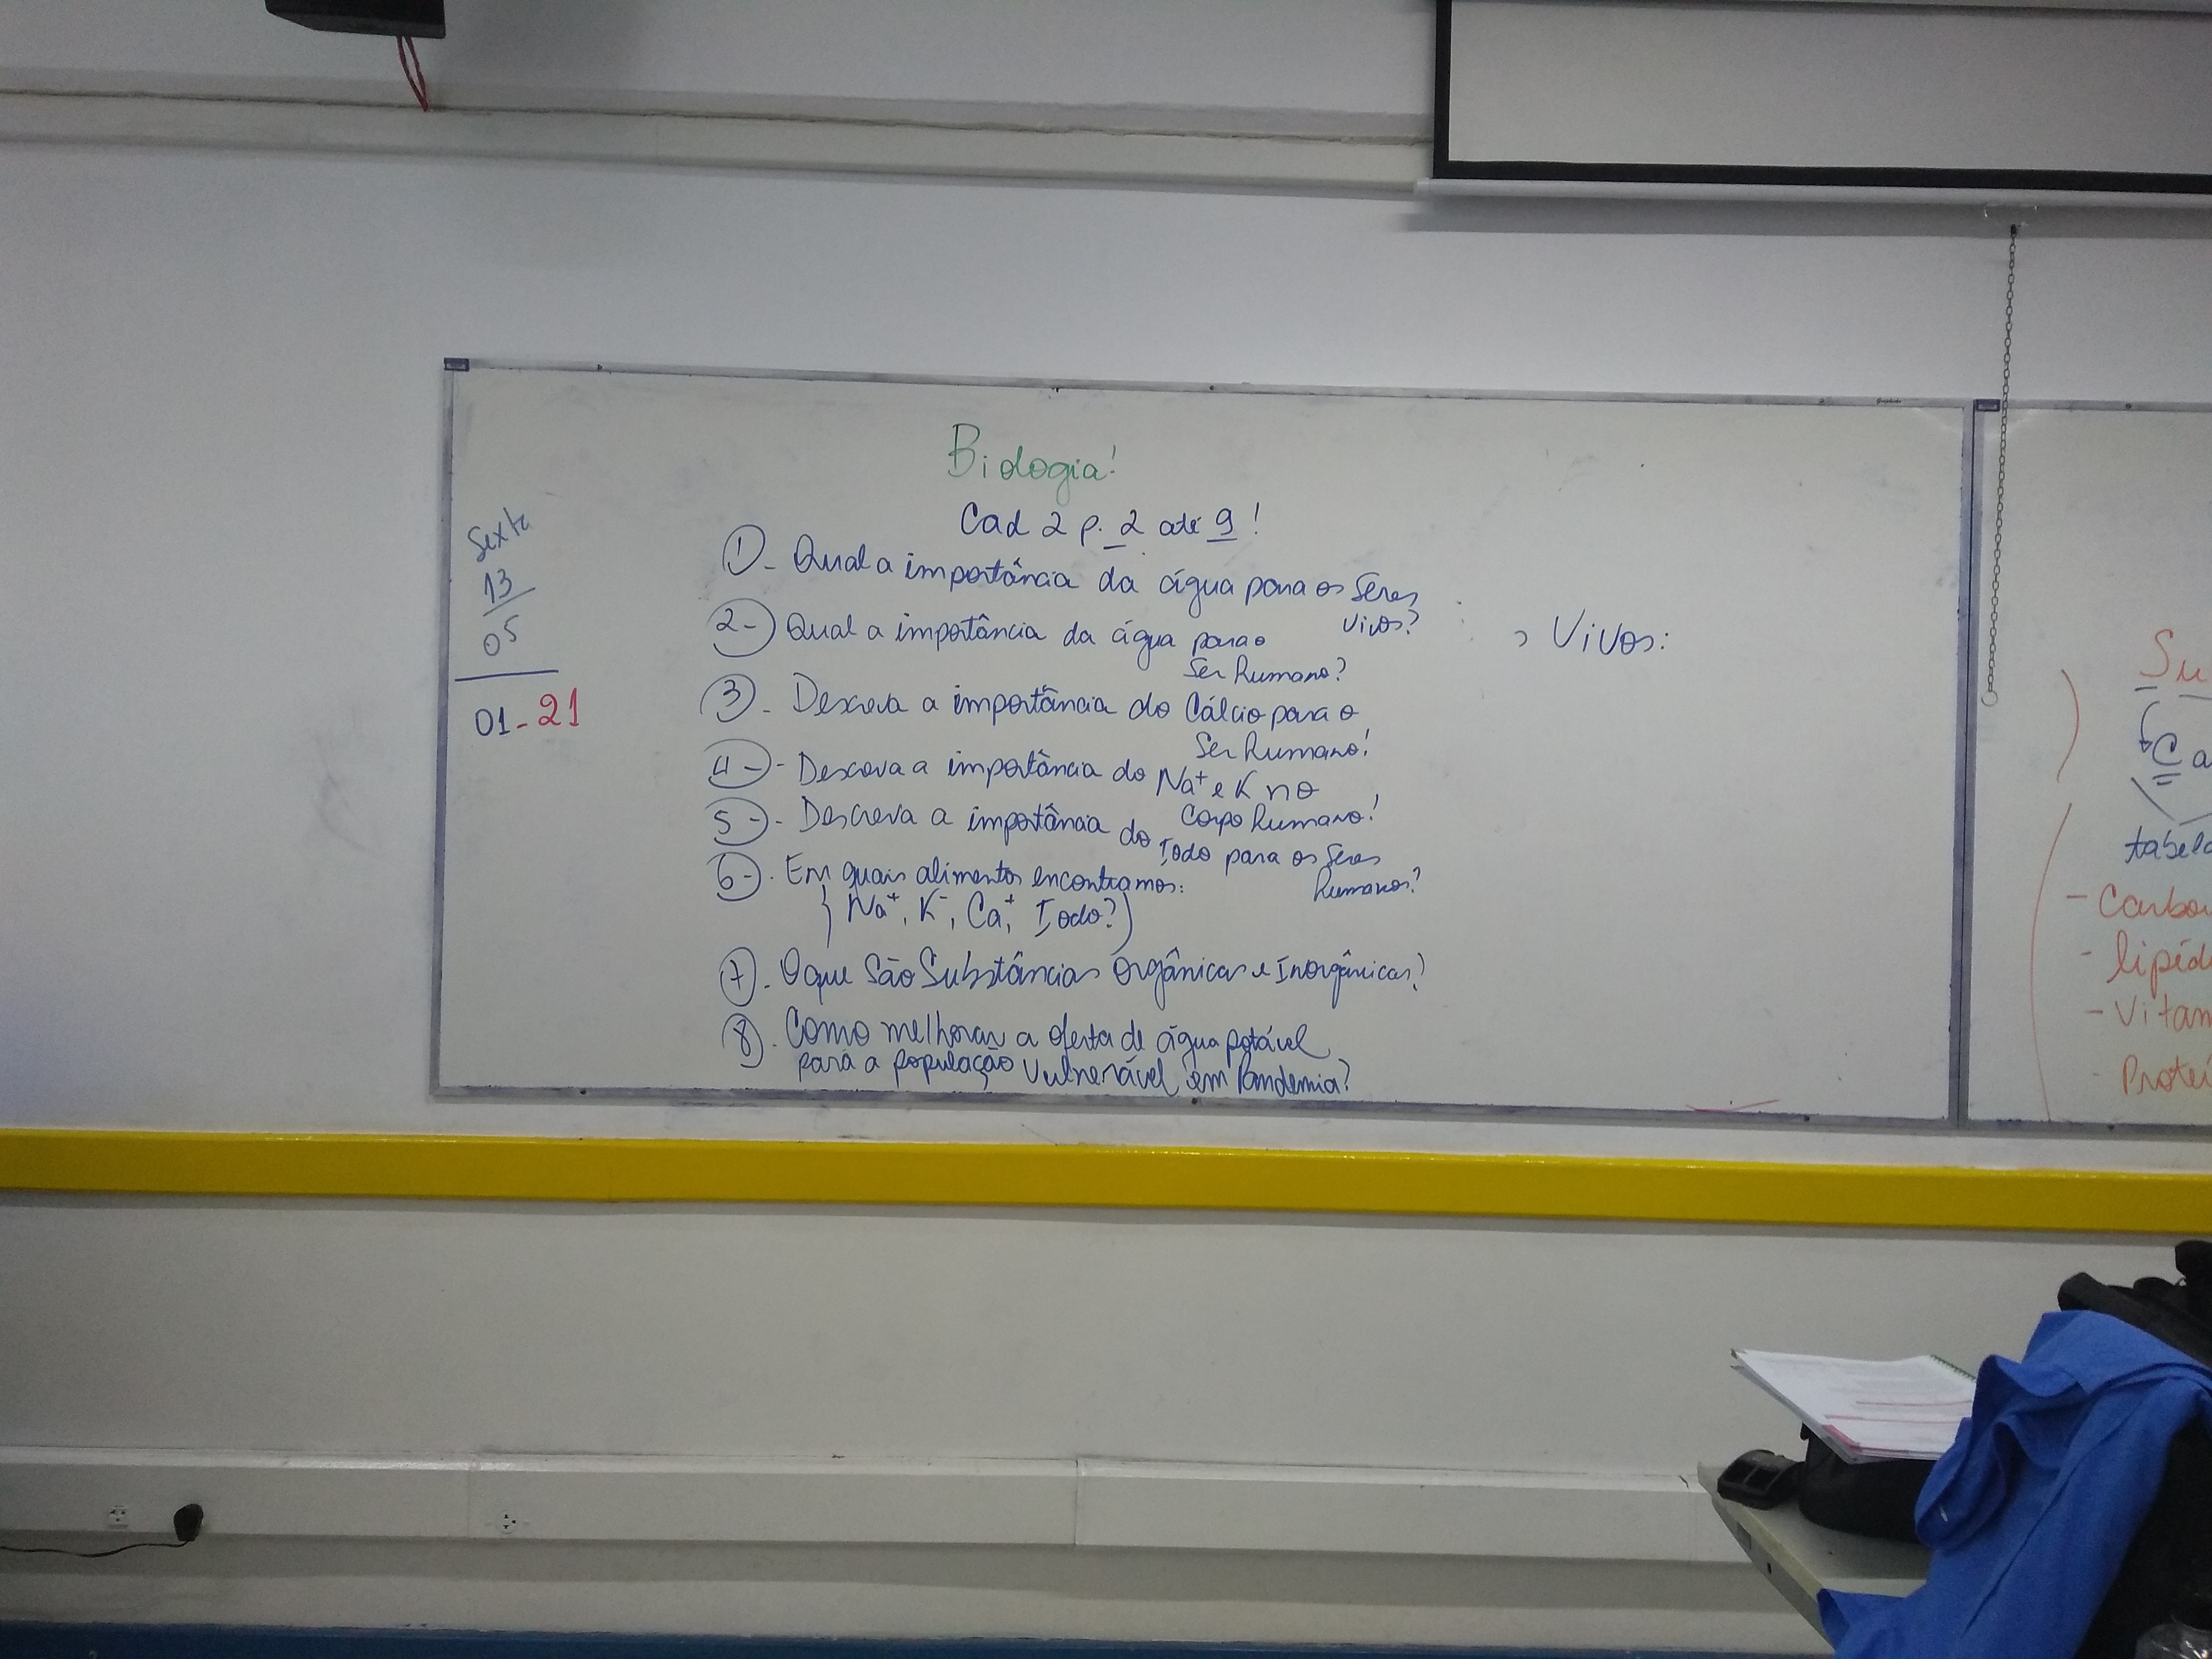 Biologia!
Cad 2 p. 2 até 9!
Sexta
13
05
01-21
1- Qual a importância da água para os Seres
Vivos?
2-) Qual a importância da água para o
Ser Humano?
3- Descreva a importância do Cálcio para o
Ser Humano!
4-)- Descreva a importância do Na⁺ e K no
Corpo Humano!
5-)- Descreva a importância do Iodo para os Seres
Humanos?
6-)- Em quais alimentos encontramos:
} Na⁺, K⁻, Ca⁺, Iodo?)
7- O que São Substâncias Orgânicas e Inorgânicas?
8- Como melhorar a oferta de água potável
para a população Vulnerável em Pandemia?
s Vivos:
Su
Ca
tabela
- Carbo
- lipíd
- Vitam
- Proteí